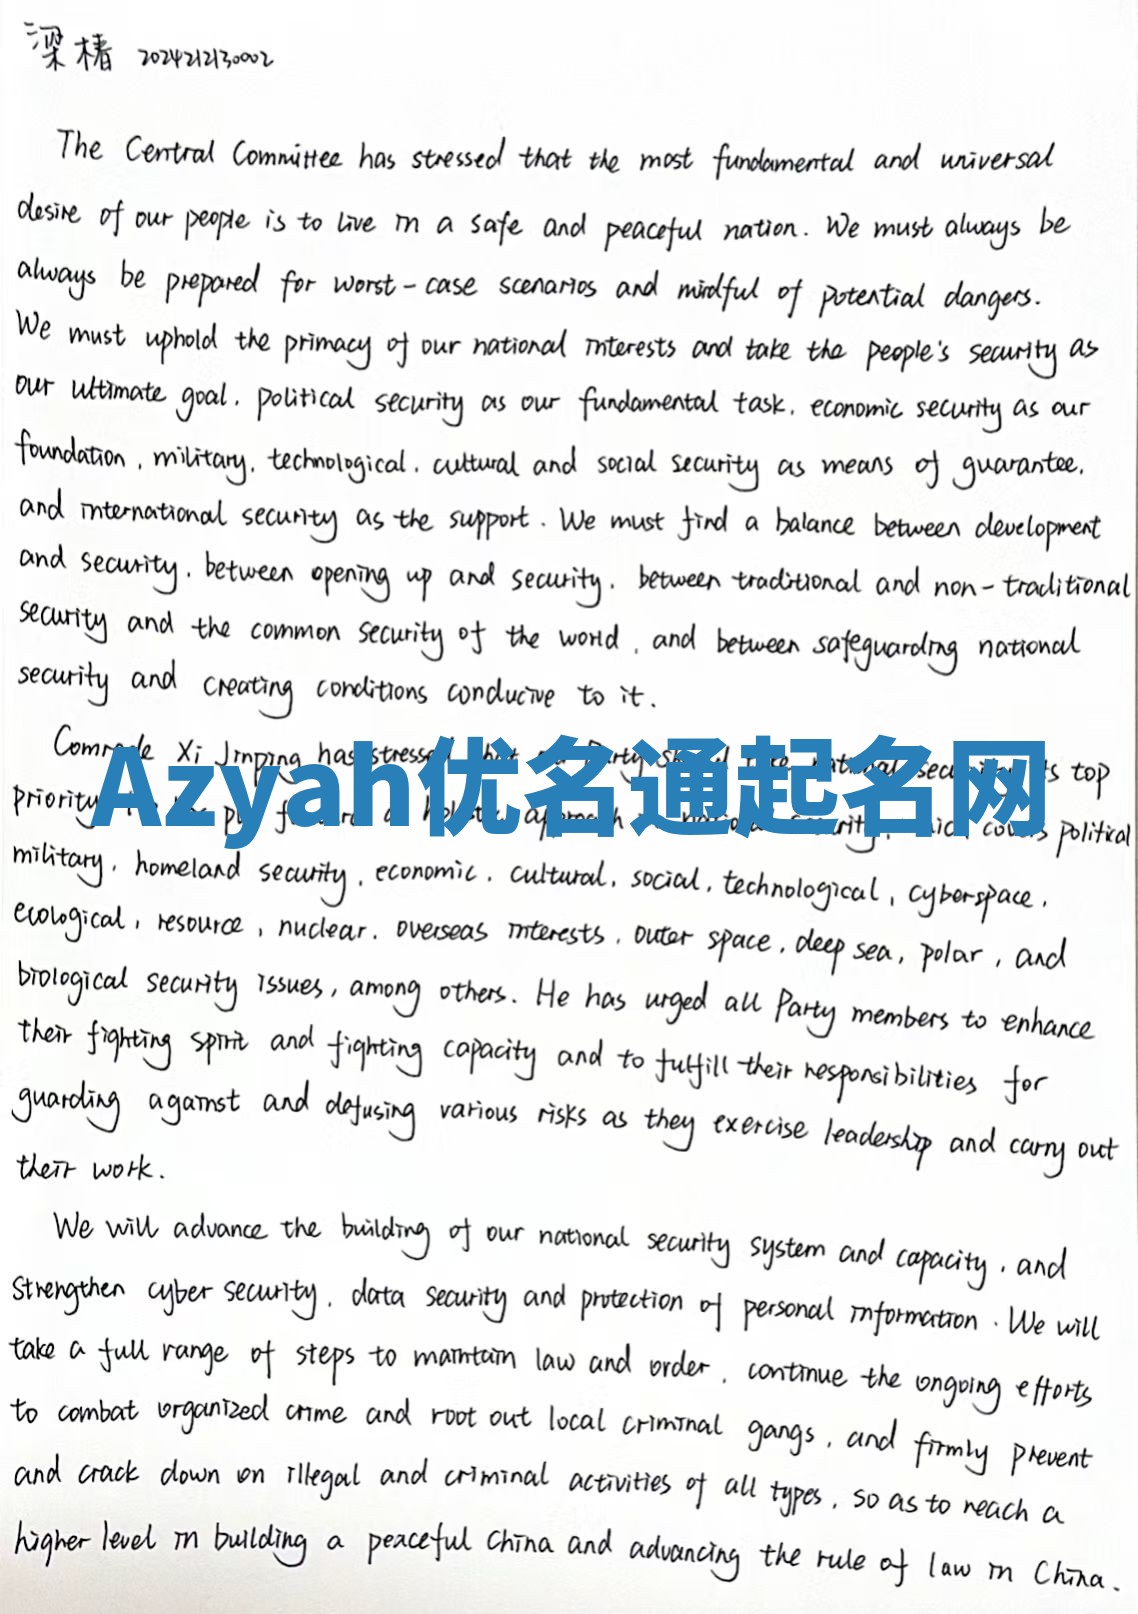 梁椿 2024212130002
The Central Committee has stressed that the most fundamental and universal
desire of our people is to live in a safe and peaceful nation. We must always be
always be prepared for worst-case scenarios and mindful of potential dangers.
We must uphold the primacy of our national interests and take the people's security as
our ultimate goal, political security as our fundamental task, economic security as our
foundation, military, technological, cultural and social security as means of guarantee,
and international security as the support. We must find a balance between development
and security, between opening up and security, between traditional and non-traditional
security and the common security of the world, and between safeguarding national
security and creating conditions conducive to it.
Comrade Xi Jinping has stressed national security top
Azyah优名通起名网
priority political
military, homeland security, economic, cultural, social, technological, cyberspace,
ecological, resource, nuclear, overseas interests, outer space, deep sea, polar, and
biological security issues, among others. He has urged all Party members to enhance
their fighting spirit and fighting capacity and to fulfill their responsibilities for
guarding against and defusing various risks as they exercise leadership and carry out
their work.
We will advance the building of our national security system and capacity, and
strengthen cyber security, data security and protection of personal information. We will
take a full range of steps to maintain law and order, continue the ongoing efforts
to combat organized crime and root out local criminal gangs, and firmly prevent
and crack down on illegal and criminal activities of all types, so as to reach a
higher level in building a peaceful China and advancing the rule of law in China.